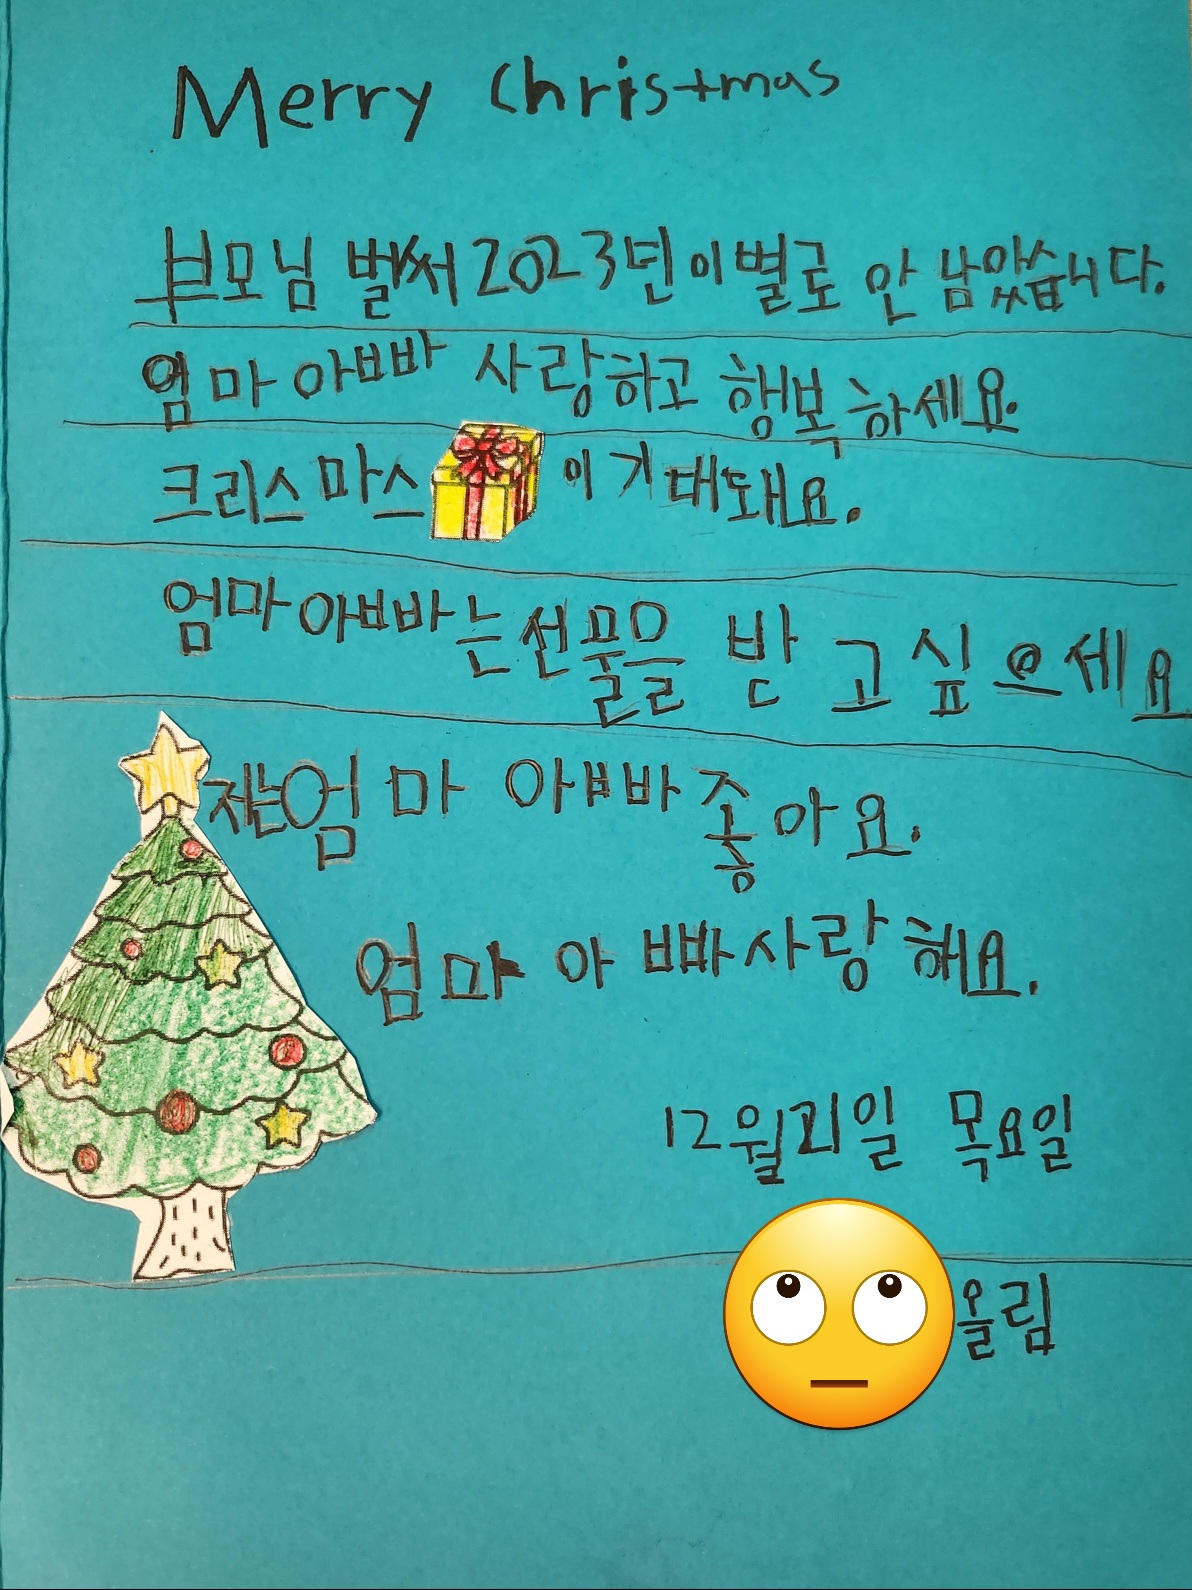 Merry Christmas
부모님 벌써 2023년이 별로 안 남았습니다.
엄마 아빠 사랑하고 행복하세요.
크리스마스 이 기대돼요.
엄마 아빠는 선물을 받고 싶으세요
저는 엄마 아빠 좋아요.
엄마 아빠 사랑해요.
12월 21일 목요일
올림